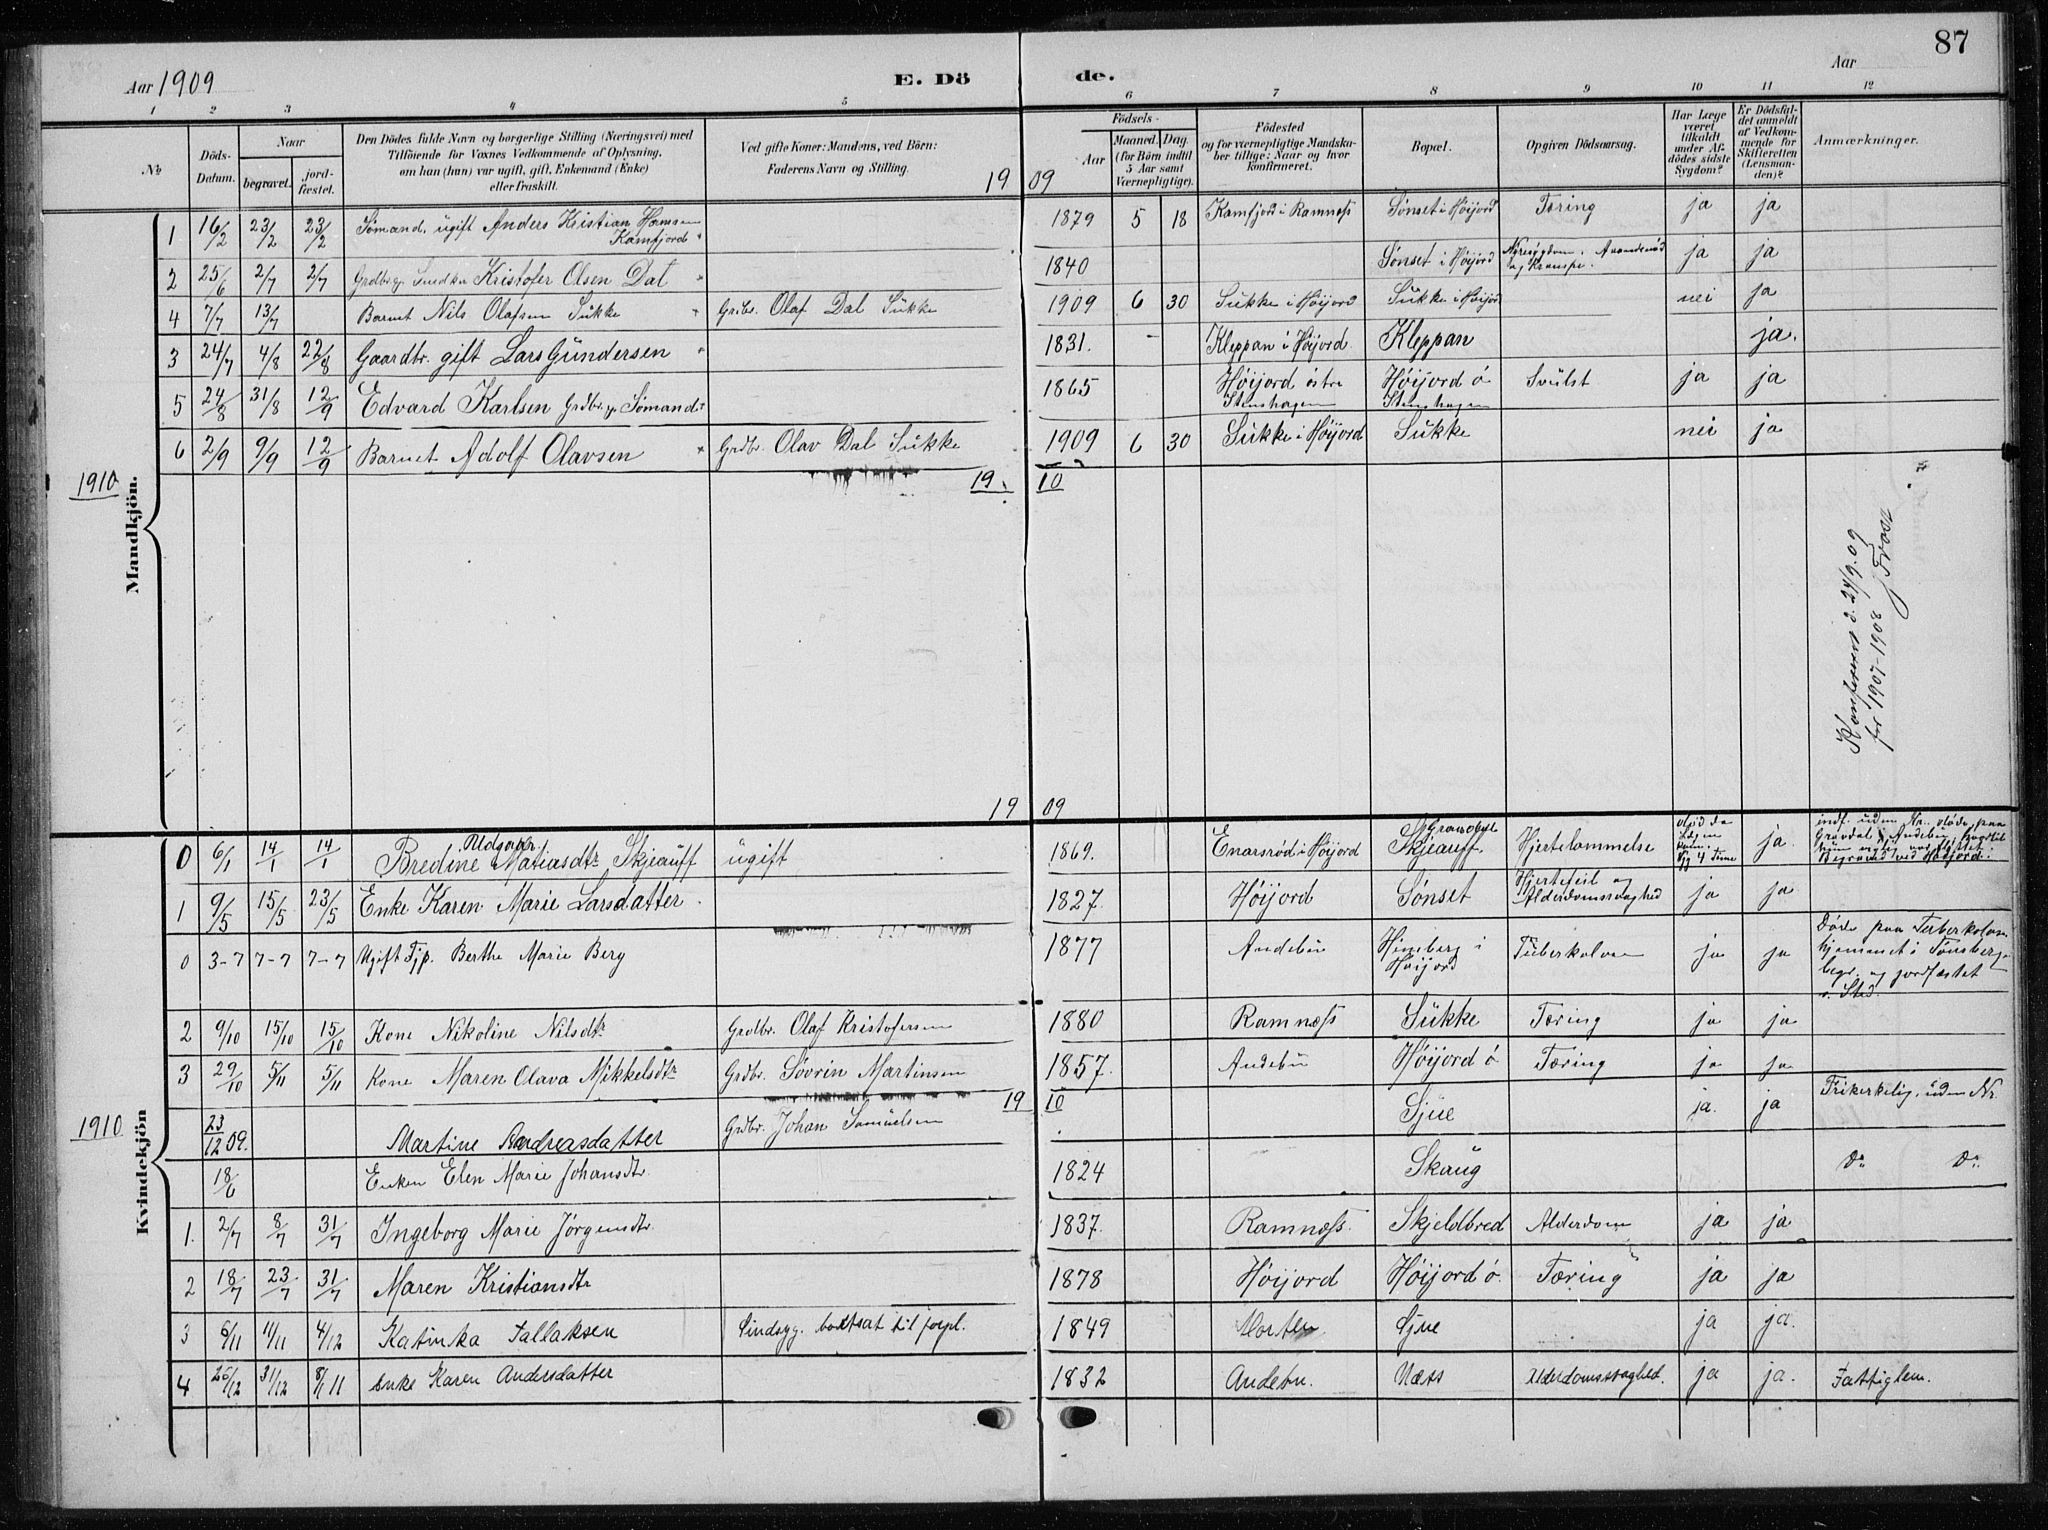 87
Aar 1909 E. Dö de. Aar
1 2 3 4 5 6 7 8 9 10 11 12
No
Döds-Datum.
Naar
begravet.
jord-fæstet.
Den Dödes fulde Navn og borgerlige Stilling (Næringsvei) med
Tilföiende for Voxnes Vedkommende af Oplysning,
om han (hun) var ugift, gift, Enkemand (Enke)
eller fraskilt.
Ved gifte Koner: Mandens, ved Börn:
Faderens Navn og Stilling.
19 09
Födsels-
Aar
Maaned. Dag.
(for Börn indtil
5 Aar samt
Værnepligtige).
Födested
og for værnepligtige Mandska-
ber tillige: Naar og hvor
konfirmeret.
Bopæl.
Opgiven Dödsaarsag.
Har Læge
været
tilkaldt
under Af-
dödes sidste
Sygdom?
Er Dödsfal-
det anmeldt
af Vedkom-
mende for
Skifteretten
(Lensman-
den)?
Anmærkninger.
Mandkjön.
1 16/2 23/2 23/2 Sømand, ugift Anders Kristian Hansen Kamfjord 1879 5 18 Kamfjord i Ramnæss Sønset i Höijord Tæring ja ja
2 25/6 2/7 2/7 Grdbr. og Snedker Kristofer Olsen Dal 1840 Sønset i Höijord Nyresygdom, Aandenød og Krampe. ja ja
4 7/7 13/7 Barnet Nils Olafsen Sukke Grdbr. Olaf Dal Sukke 1909 6 30 Sukke i Höijord Sukke i Höijord nei ja
3 24/7 4/8 22/8 Gaardbr. gift Lars Gundersen 1831. - Kleppan i Höijord Kleppan ja.
5 24/8 31/8 12/9 Edvard Karlsen Grdbr. og Sømand 1865 Höijord östre Stenshagen Höijord ö Stenshagen Svulst ja ja
6 2/9 9/9 12/9 Barnet Adolf Olavsen Grdbr. Olav Dal Sukke 1909 6 30 Sukke i Höijord Sukke nei ja
1910 19 10
Konfereret d. 24/9.09
for 1907-1908
19 09
Kvindekjön
0 6/1 14/1 14/1 Bredine Matiasdtr Skjeauff ugift 1869. Enarsrød i Höijord Skjeauff Hjertelammelse ja.
1 9/5 15/5 23/5 Enke Karen Marie Larsdatter 1827. Höijord Sønset Hjertefeil og Alderdomssvaghed ja ja
0 3-7 7-7 7-7 Ugift Tjp. Berthe Marie Berg 1877 Andebu Himberg i Höijord Tuberkulose ja ja Døde paa Tuberkulose hjemmet i Tønsberg, begr. og jordfæstet s. Sted.
2 9/10 15/10 15/10 Kone Nikoline Nilsdtr Grdbr. Olaf Kristofersen 1880 Ramnæss Sukke Tæring ja ja
3 29/10 5/11 5/11 Kone Maren Olava Mikkelsdtr Grdbr. Søvrin Martinsen 1857. Andebu Höijord ö Tæring ja ja
1910 19 10
23/12 09. Martine Andreasdatter Grdbr. Johan Samuelsen Gjue ja. ja Frikirkelig, uden Nr.
18/6 Enken Elen Marie Johansdtr 1824 Skaug Do Do
1. 2/7 8/7 31/7 Ingeborg Marie Jörgensdtr. 1837. Ramnæss. Skjeldbred Alderdom ja ja
2 18/7 23/7 31/7 Maren Kristiansdtr 1878 Höijord Höijord ö. Tæring ja ja
3 6/11 11/11 4/12 Katinka Tallaksen Sindsyg. bortsat til forpl. 1849 Horten Gjue ja ja.
4 26/12 31/12 8/1 11 Enke Karen Andersdatter 1832 Andebu. Næss Alderdomssvaghed. ja ja. Fattiglem.